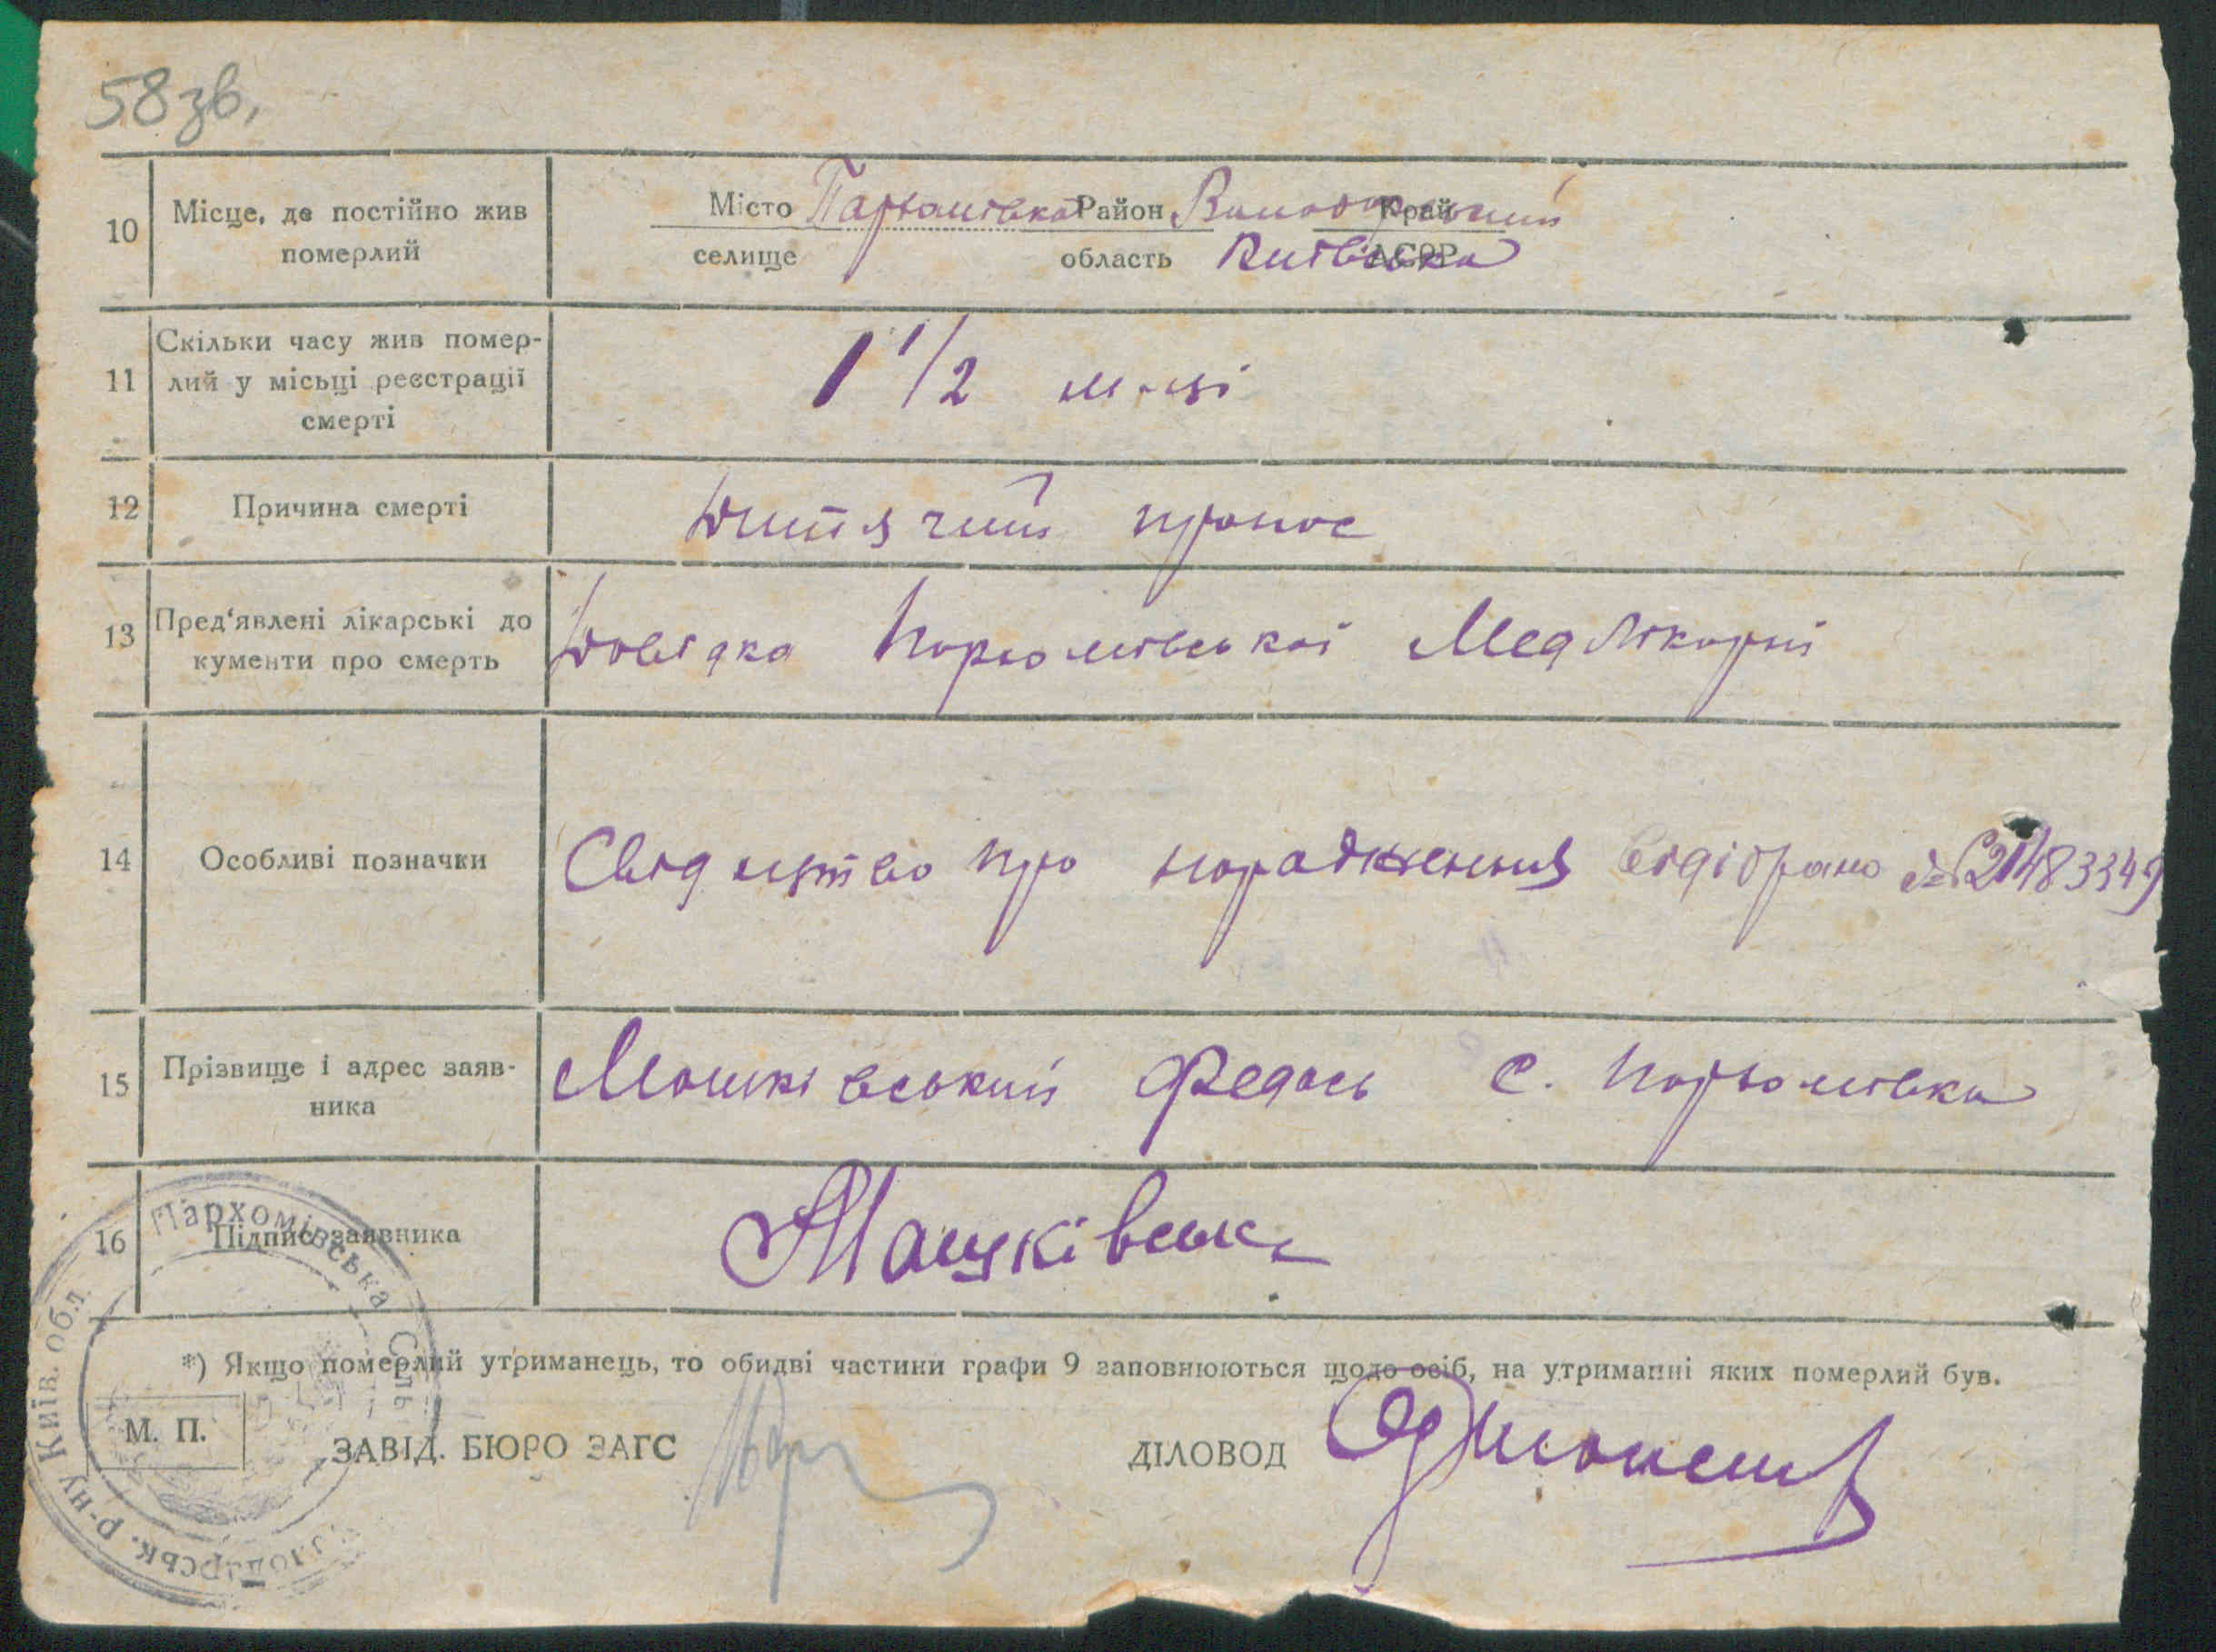 58зв.
10 Місце, де постійно жив померлий
Місто Пархомівка Район Володарський Край
селище область Київська АСРР
11 Скільки часу жив помер-
лий у місьці реєстрації
смерті
1 1/2 м-ці
12 Причина смерті
Дитячий пронос
13 Пред'явлені лікарські до
кументи про смерть
Довідка Пархомівської Медлікарні
14 Особливі позначки
Свідоцтво про народження відібрано №
15 Прізвище і адрес заяв-
ника
Мошківський Федось с. Пархомівка
16 Підпис заявника
*) Якщо померлий утриманець, то обидві частини графи 9 заповнюються щодо осіб, на утриманні яких померлий був.
М. П.
ЗАВІД. БЮРО ЗАГС
ДІЛОВОД
Пархомівська Сіль
лодарськ. р-ну Київ. обл.